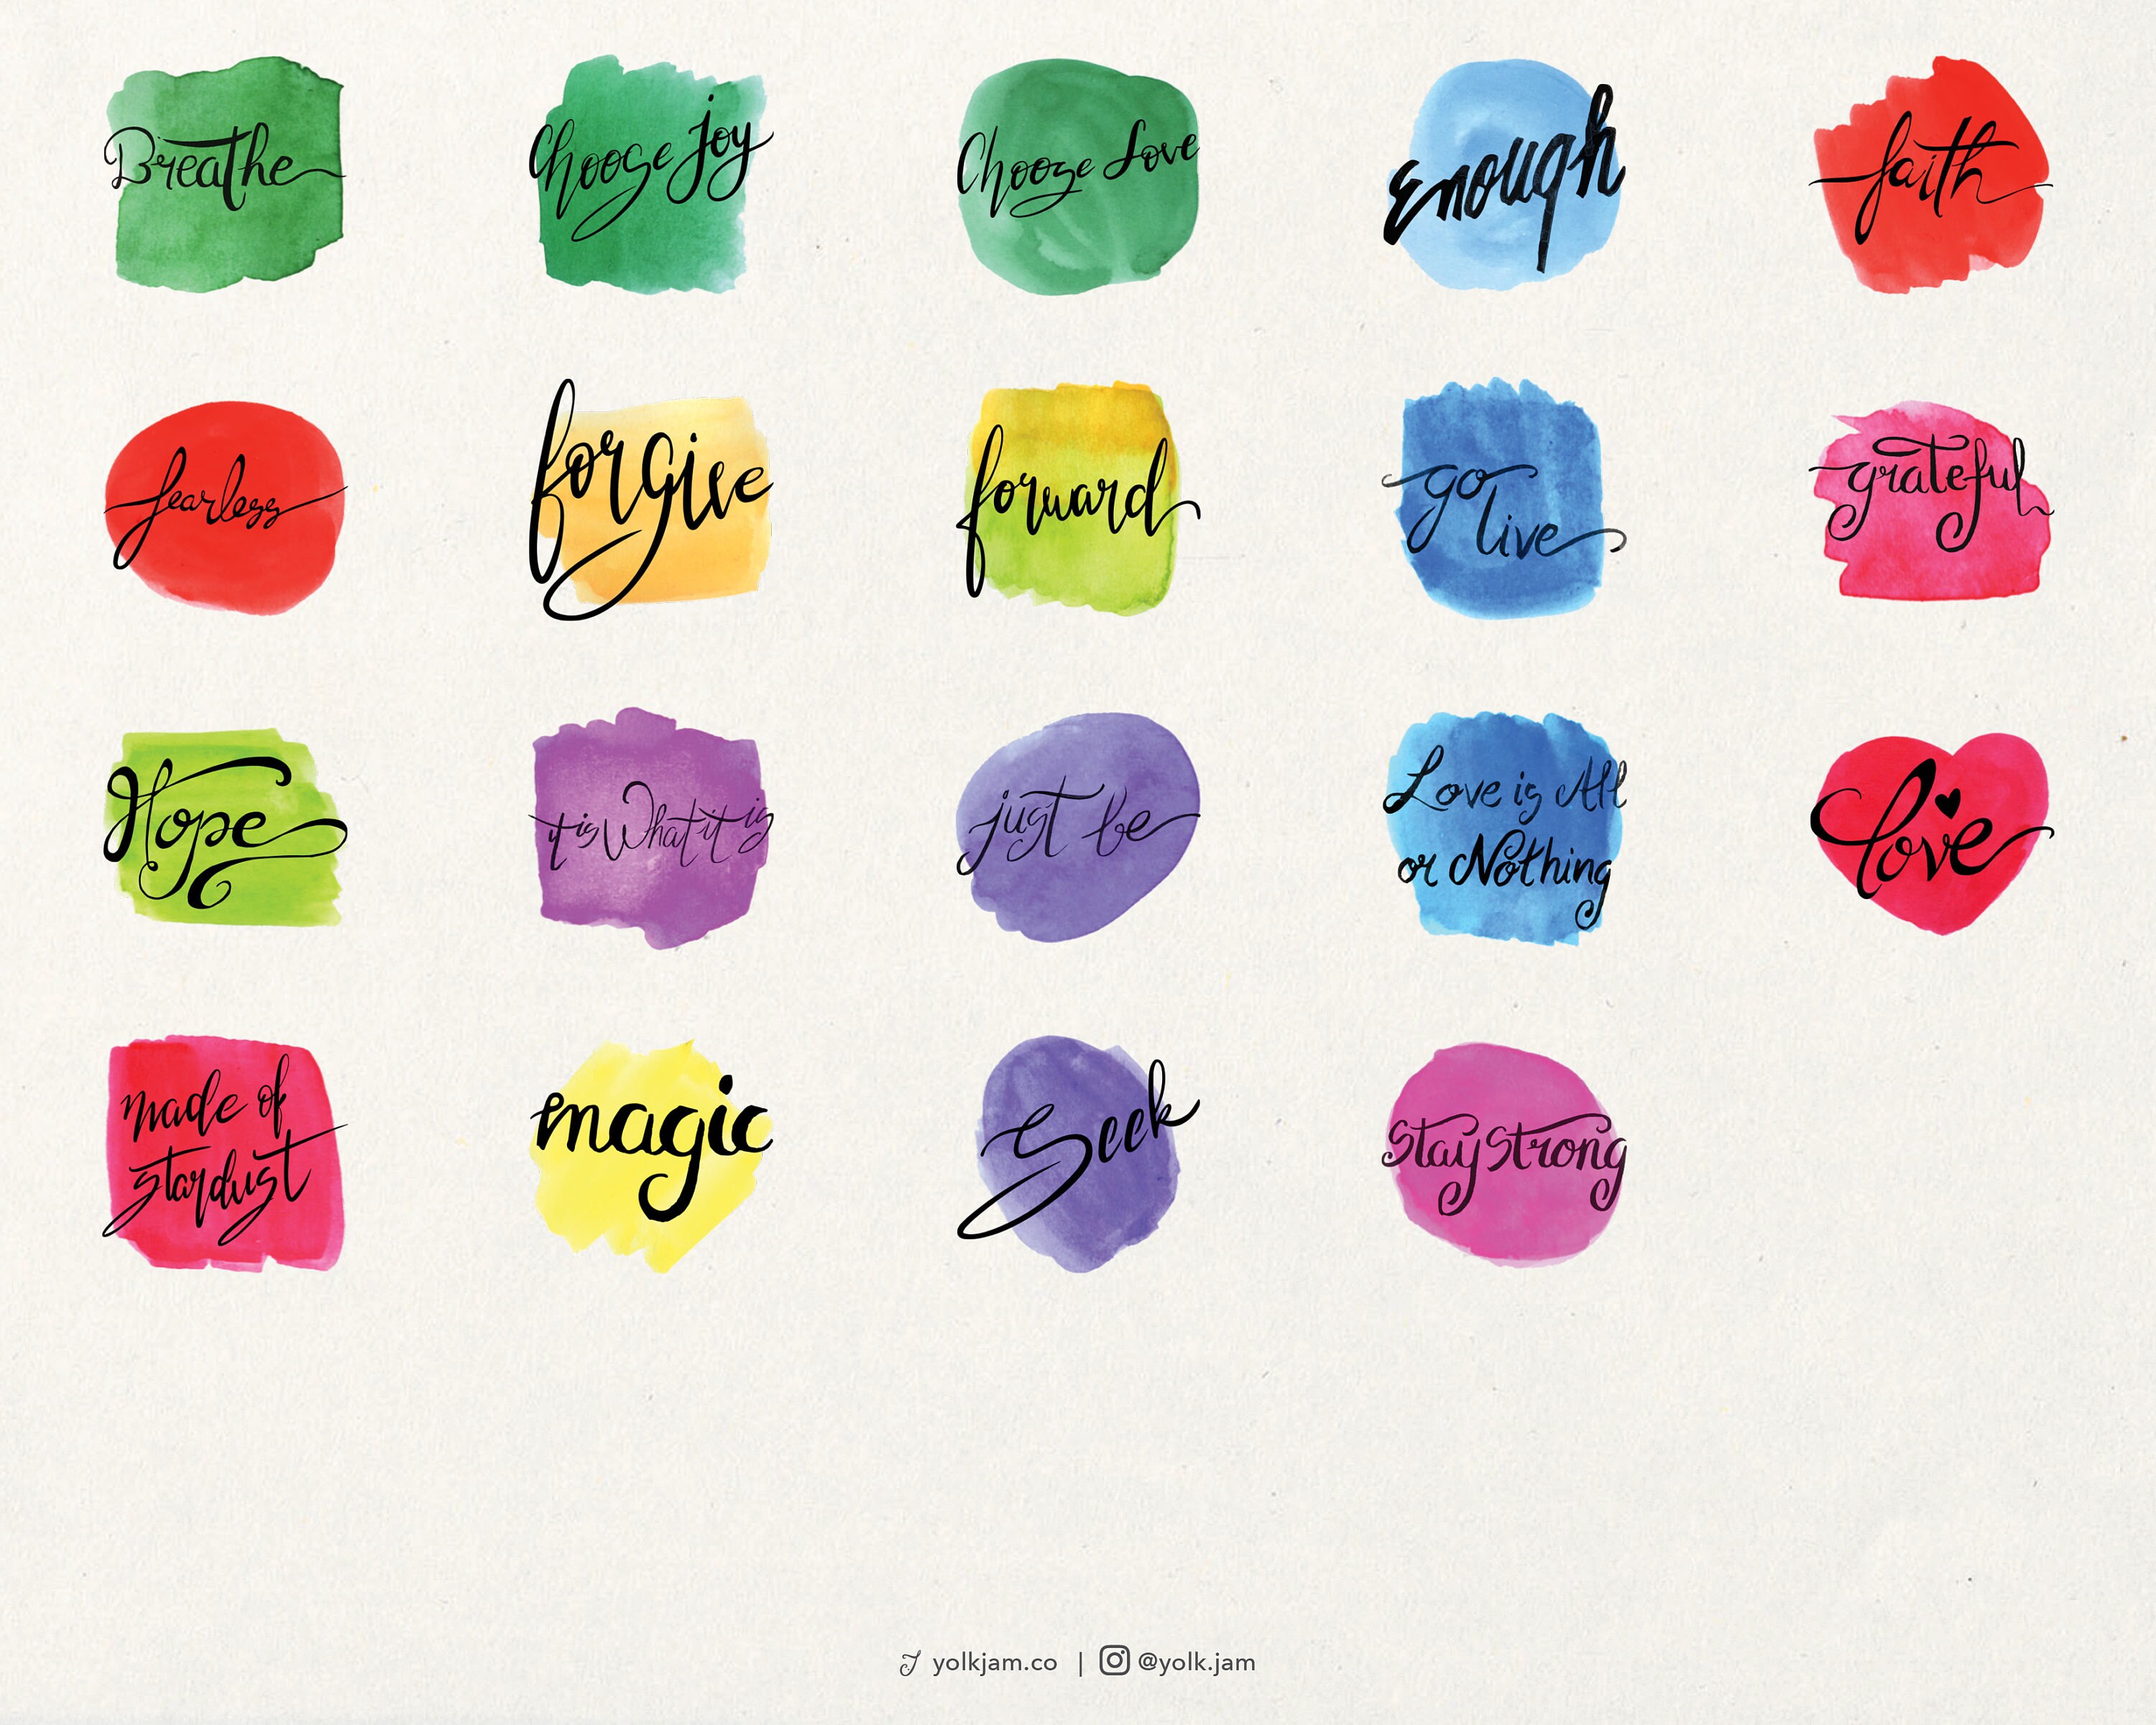 Breathe
Choose Joy
Choose Love
Enough
faith
fearless
forgive
forward
go
live
grateful
Hope
it is What it is
just be
Love is All
or Nothing
love
made of
stardust
magic
Seek
Stay Strong
yolkjam.co | @yolk.jam